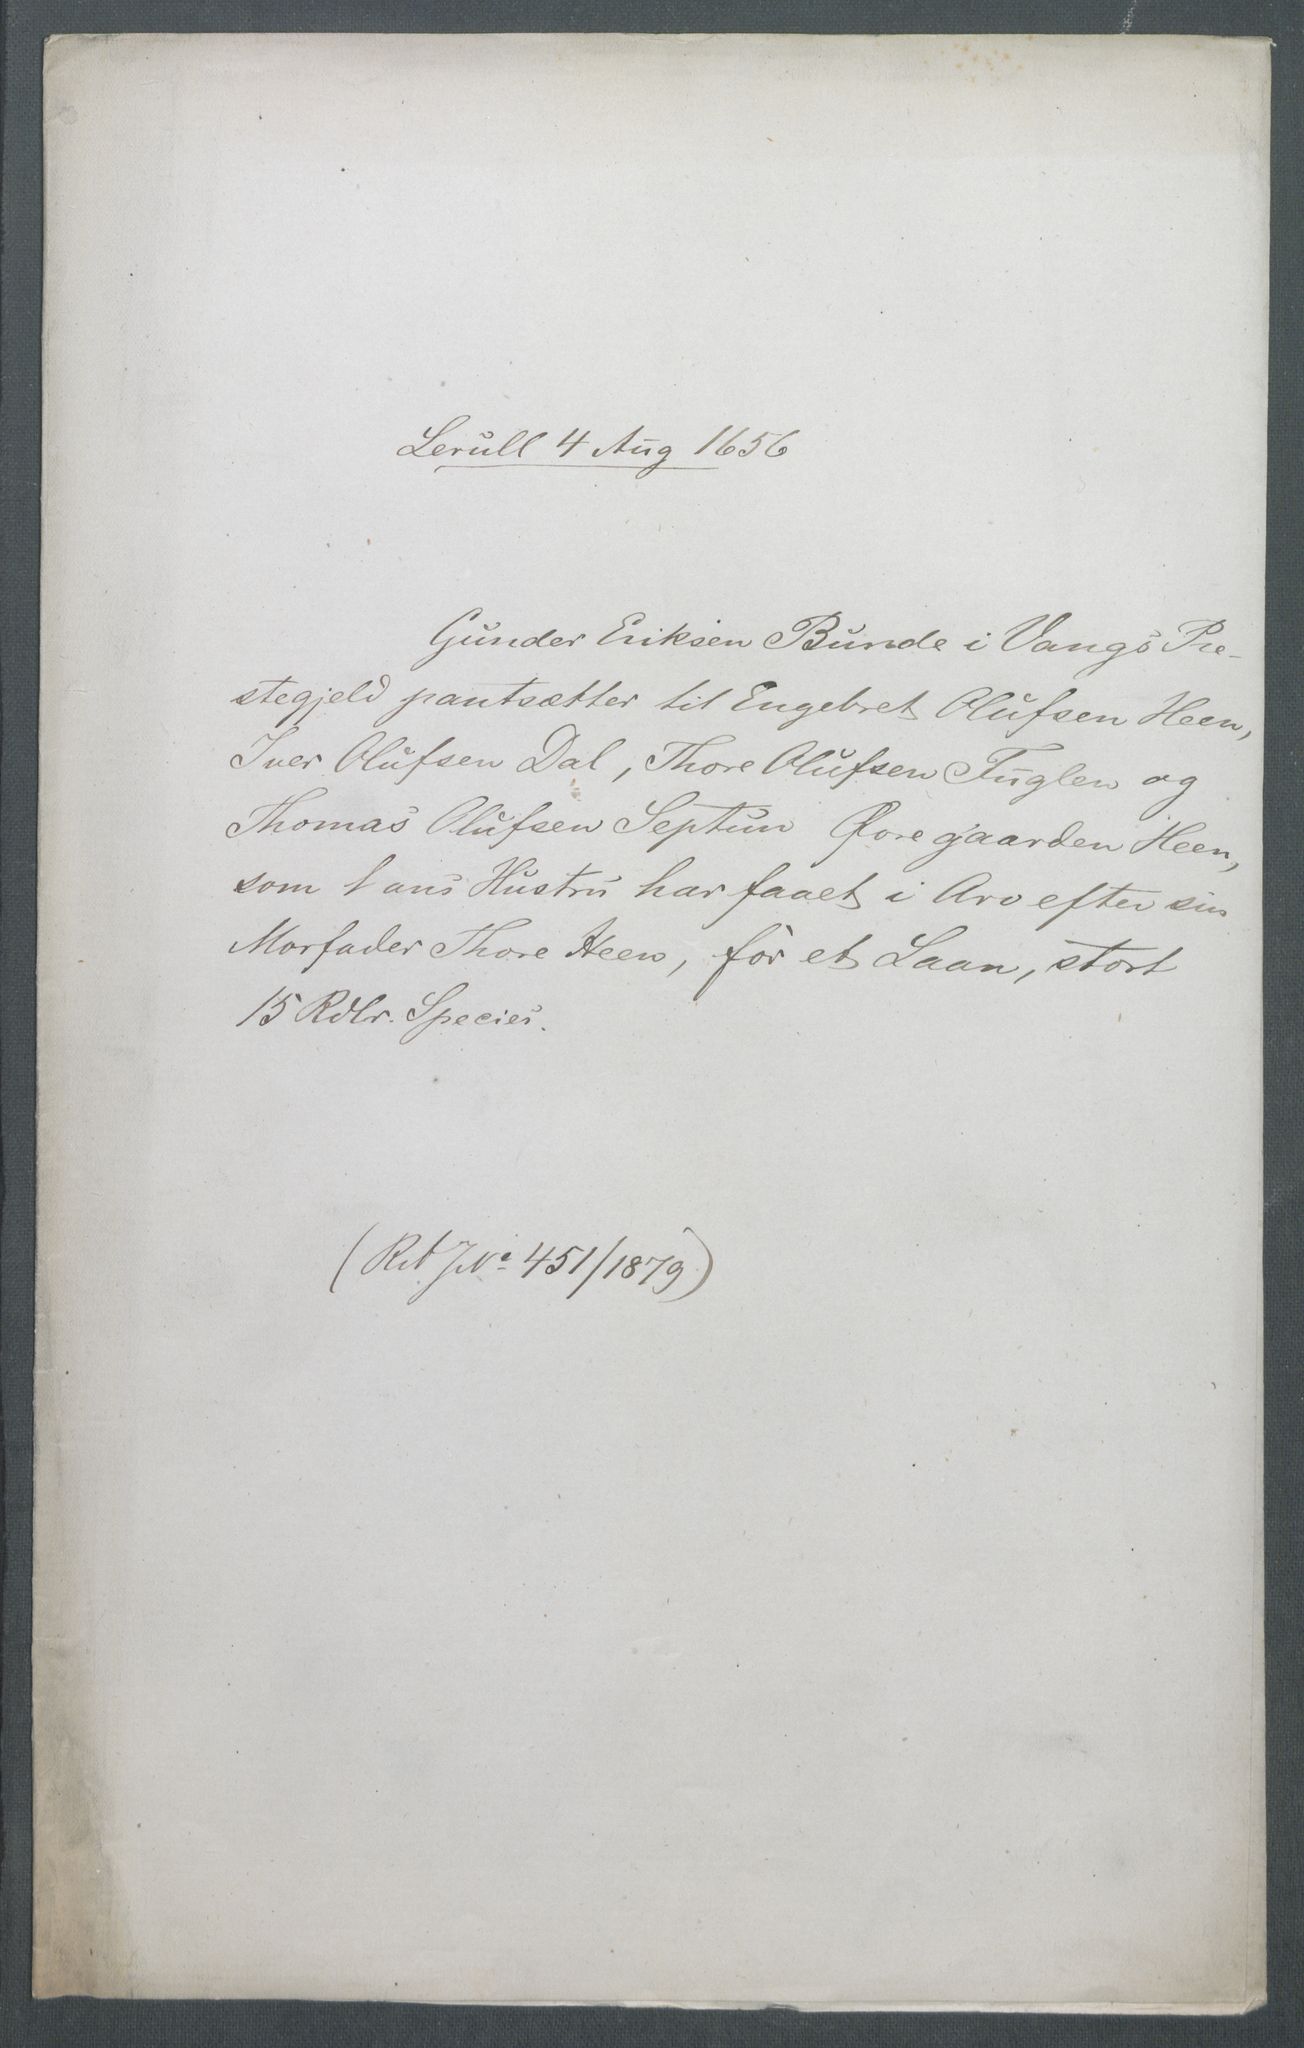 Lerull 4 Aug 1656
Gunder Eriksen Bunde i Vangs Præ-
stegjeld pantsætter til Engebret Olufsen Heen,
Iver Olufsen Dal, Thore Olufsen Fuglen og
Thomas Olufsen Septun Øvregaarden Heen,
som hans Hustru har faaet i Arv efter sin
Morfader Thore Heen, for et Laan, stort
15 Rdlr. Species.
(RA JNo 451/1879)